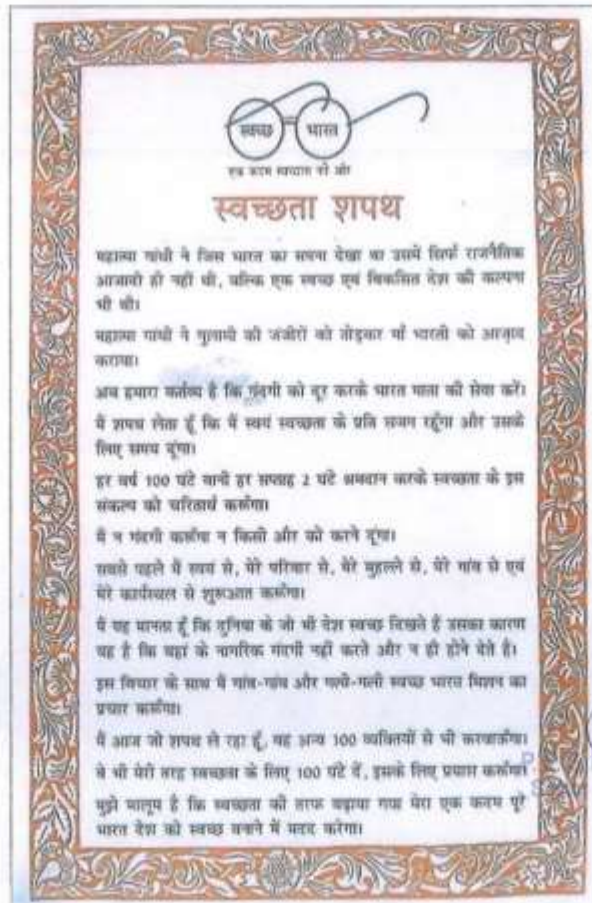 स्वच्छ भारत
एक कदम स्वच्छता की ओर
स्वच्छता शपथ
महात्मा गांधी ने जिस भारत का सपना देखा था उसमें सिर्फ राजनैतिक
आजादी ही नहीं थी, बल्कि एक स्वच्छ एवं विकसित देश की कल्पना
भी थी।
महात्मा गांधी ने गुलामी की जंजीरों को तोड़कर माँ भारती को आज़ाद
कराया।
अब हमारा कर्तव्य है कि गंदगी को दूर करके भारत माता की सेवा करें।
मैं शपथ लेता हूँ कि मैं स्वयं स्वच्छता के प्रति सजग रहूँगा और उसके
लिए समय दूंगा।
हर वर्ष 100 घंटे यानी हर सप्ताह 2 घंटे श्रमदान करके स्वच्छता के इस
संकल्प को चरितार्थ करूँगा।
मैं न गंदगी करूँगा न किसी और को करने दूंगा।
सबसे पहले मैं स्वयं से, मेरे परिवार से, मेरे मुहल्ले से, मेरे गांव से एवं
मेरे कार्यस्थल से शुरुआत करूँगा।
मैं यह मानता हूँ कि दुनिया के जो भी देश स्वच्छ दिखते हैं उसका कारण
यह है कि वहां के नागरिक गंदगी नहीं करते और न ही होने देते है।
इस विचार के साथ मैं गांव-गांव और गली-गली स्वच्छ भारत मिशन का
प्रचार करूँगा।
मैं आज जो शपथ ले रहा हूँ, वह अन्य 100 व्यक्तियों से भी करवाऊँगा।
वे भी मेरी तरह स्वच्छता के लिए 100 घंटे दें, इसके लिए प्रयास करूँगा।
मुझे मालूम है कि स्वच्छता की तरफ बढ़ाया गया मेरा एक कदम पूरे
भारत देश को स्वच्छ बनाने में मदद करेगा।